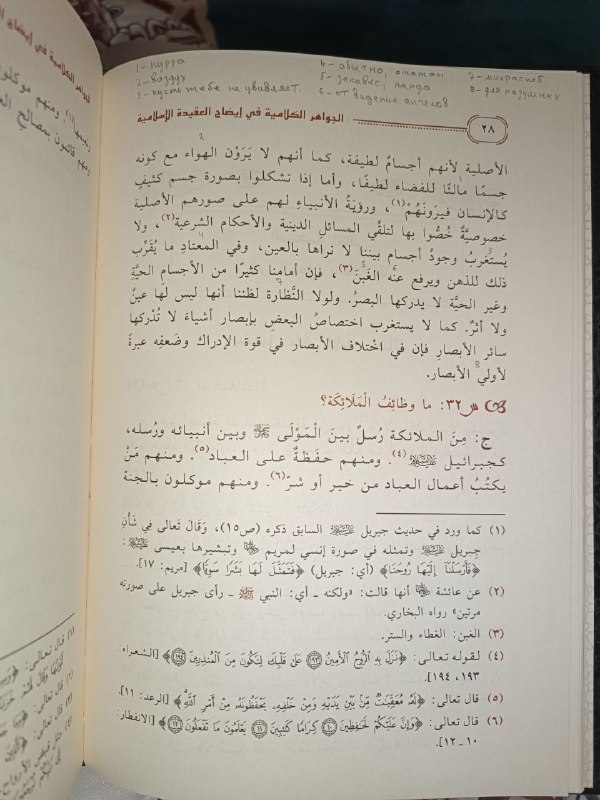 2 - воздух
3 - пусть тебе не удивляет.
4 - обычно,
5 - занавес,
6 - от видение ангелов
8 - для разумных
الجواهر الكلامية في إيضاح العقيدة الإسلامية
٢٨
الأصلية لأنهم أجسامٌ لطيفة، كما أنهم لا يَرَوْن الهواء مع كونه
جسمًا مالئًا للفضاء لطيفًا، وأما إذا تشكلوا بصورة جسم كثيفٍ
كالإنسان فيرَونَهُمْ(١)، ورؤيَةُ الأنبياءِ لهم على صورهم الأصلية
خصوصيَّةٌ خُصُّوا بها لتلقِّي المسائل الدينية والأحكام الشرعية(٢)، ولا
يُستَغربُ وجودُ أجسامٍ بيننا لا نراها بالعين، وفي المعتادِ ما يُقَرِّب
ذلك للذهن ويرفع عنْه الغَبَنَ(٣)، فإن أمامنا كثيرًا من الأجسام الحيَّةِ
وغير الحيَّة لا يدركها البصرُ. ولولا النَّظارة لظننا أنها ليس لها عينٌ
ولا أثرٌ. كما لا يستغرب اختصاصُ البعض بإبصار أشياءَ لا تُدْركها
سائر الأبصارِ فإن في اخْتلاف الأبصار في قوة الإدراك وضَعفِه عبرةً
لأولي الأبصار.
س٣٢: ما وظائِفُ الْمَلَائِكَة؟
ج: مِنَ الملائكة رُسلٌ بينَ الْمَوْلَى ﷻ وبين أنبيائه ورُسله،
كجبرائيل ﵇(٤). ومنهم حفَظةٌ على العباد(٥). ومنهم مَنْ
يكتُبُ أعمال العباد من خير أو شرّ(٦). ومنهم موكلون بالجنة
(١) كما ورد في حديث جبريل ﵇ السابق ذكره (ص١٥)، وَقَالَ تَعالى فِي شَأْنِ
جِبريل ﵇ وتمثله في صورة إنسي لمريم ﵍ وتبشيرها بعيسى ﵇:
﴿فَأَرْسَلْنَآ إِلَيْهَا رُوحَنَا﴾ (أي: جبريل) ﴿فَتَمَثَّلَ لَهَا بَشَرًا سَوِيًّا﴾ [مريم: ١٧].
(٢) عن عائشة ﵂ أنها قالت: «ولكنه ـ أي: النبي ﷺ ـ رأى جبريل على صورته
مرتين» رواه البخاري.
(٣) الغبن: الغطاء والستر.
(٤) لقوله تعالى: ﴿نَزَلَ بِهِ الرُّوحُ الْأَمِينُ ﴿١٩٣﴾ عَلَىٰ قَلْبِكَ لِتَكُونَ مِنَ الْمُنذِرِينَ ﴿١٩٤﴾﴾ [الشعراء:
١٩٣، ١٩٤].
(٥) قال تعالى: ﴿لَهُ مُعَقِّبَٰتٌ مِّنۢ بَيْنِ يَدَيْهِ وَمِنْ خَلْفِهِۦ يَحْفَظُونَهُۥ مِنْ أَمْرِ اللَّهِ﴾ [الرعد: ١١].
(٦) قال تعالى: ﴿وَإِنَّ عَلَيْكُمْ لَحَٰفِظِينَ ﴿١٠﴾ كِرَامًا كَٰتِبِينَ ﴿١١﴾ يَعْلَمُونَ مَا تَفْعَلُونَ ﴿١٢﴾﴾ [الانفطار:
١٠ ـ ١٢].